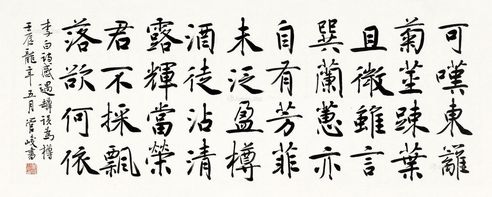 可嘆東離
菊莖踈葉
且微雖言
異蘭蕙亦
自有芳菲
未泛盈樽
酒徒沾清
露輝當榮
君不採飄
落欲何依
李白詩感遇罇誤為樽
壬辰龍年五月管峻書